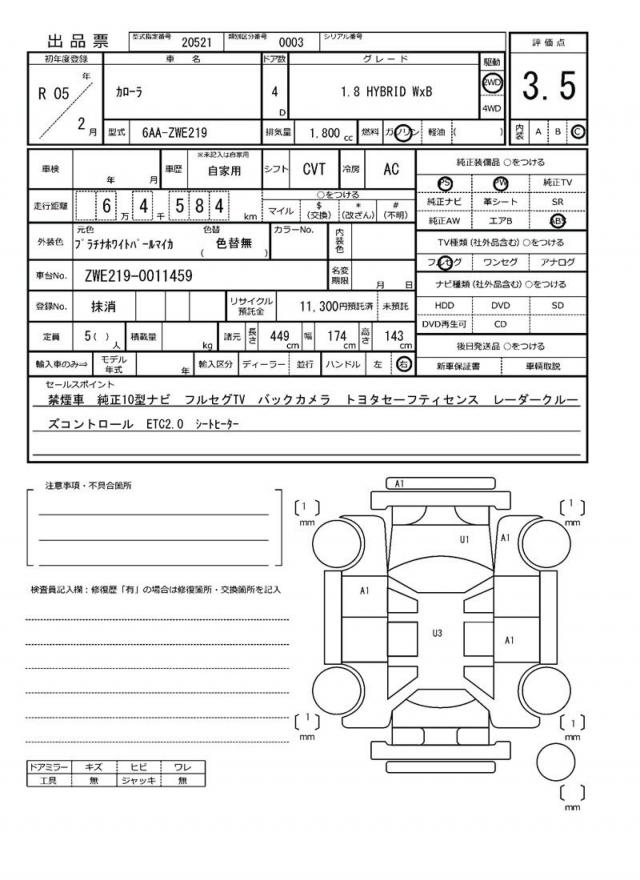 出品票 型式指定番号 20521 類別区分番号 0003 シリアル番号
初年度登録 車名 ドア数 グレード 駆動 評価点
R 05 年 2 月 カローラ 4 D 1.8 HYBRID WxB 2WD 4WD 3.5
型式 6AA-ZWE219 排気量 1.800 cc 燃料 ガソリン 軽油 ( ) 内装 A B C
車検 年 月 車歴 ※未記入は自家用 自家用 シフト CVT 冷房 AC
走行距離 6 万 4 千 5 8 4 km ○をつける
マイル $ (交換) * (改ざん) # (不明)
外装色 元色 プラチナホワイトパールマイカ 色替 ( 色替無 ) カラーNo. 内装色
車台No. ZWE219-0011459 名変期限 月 日
登録No. 抹消 リサイクル預託金 11,300円預託済 未預託
定員 5( ) 人 積載量 kg 諸元 長さ 449 cm 幅 174 cm 高さ 143 cm
輸入車のみ⇒ モデル年式 年 輸入区分 ディーラー 並行 ハンドル 左 右
純正装備品 ○をつける
PS PW 純正TV
純正ナビ 革シート SR
純正AW エアB ABS
TV種類(社外品含む)○をつける
フルセグ ワンセグ アナログ
ナビ種類(社外品含む)○をつける
HDD DVD SD
DVD再生可 CD
後日発送品 ○をつける
新車保証書 車輌取説
セールスポイント
禁煙車 純正10型ナビ フルセグTV バックカメラ トヨタセーフティセンス レーダークルー
ズコントロール ETC2.0 シートヒーター
注意事項・不具合箇所
検査員記入欄:修復歴「有」の場合は修復箇所・交換箇所を記入
ドアミラー キズ ヒビ ワレ
工具 無 ジャッキ 無
A1
[ 1 ] mm
[ 1 ] mm
U1 A1
A1
U3 A1
[ 1 ] mm
[ 1 ] mm
[ ] mm